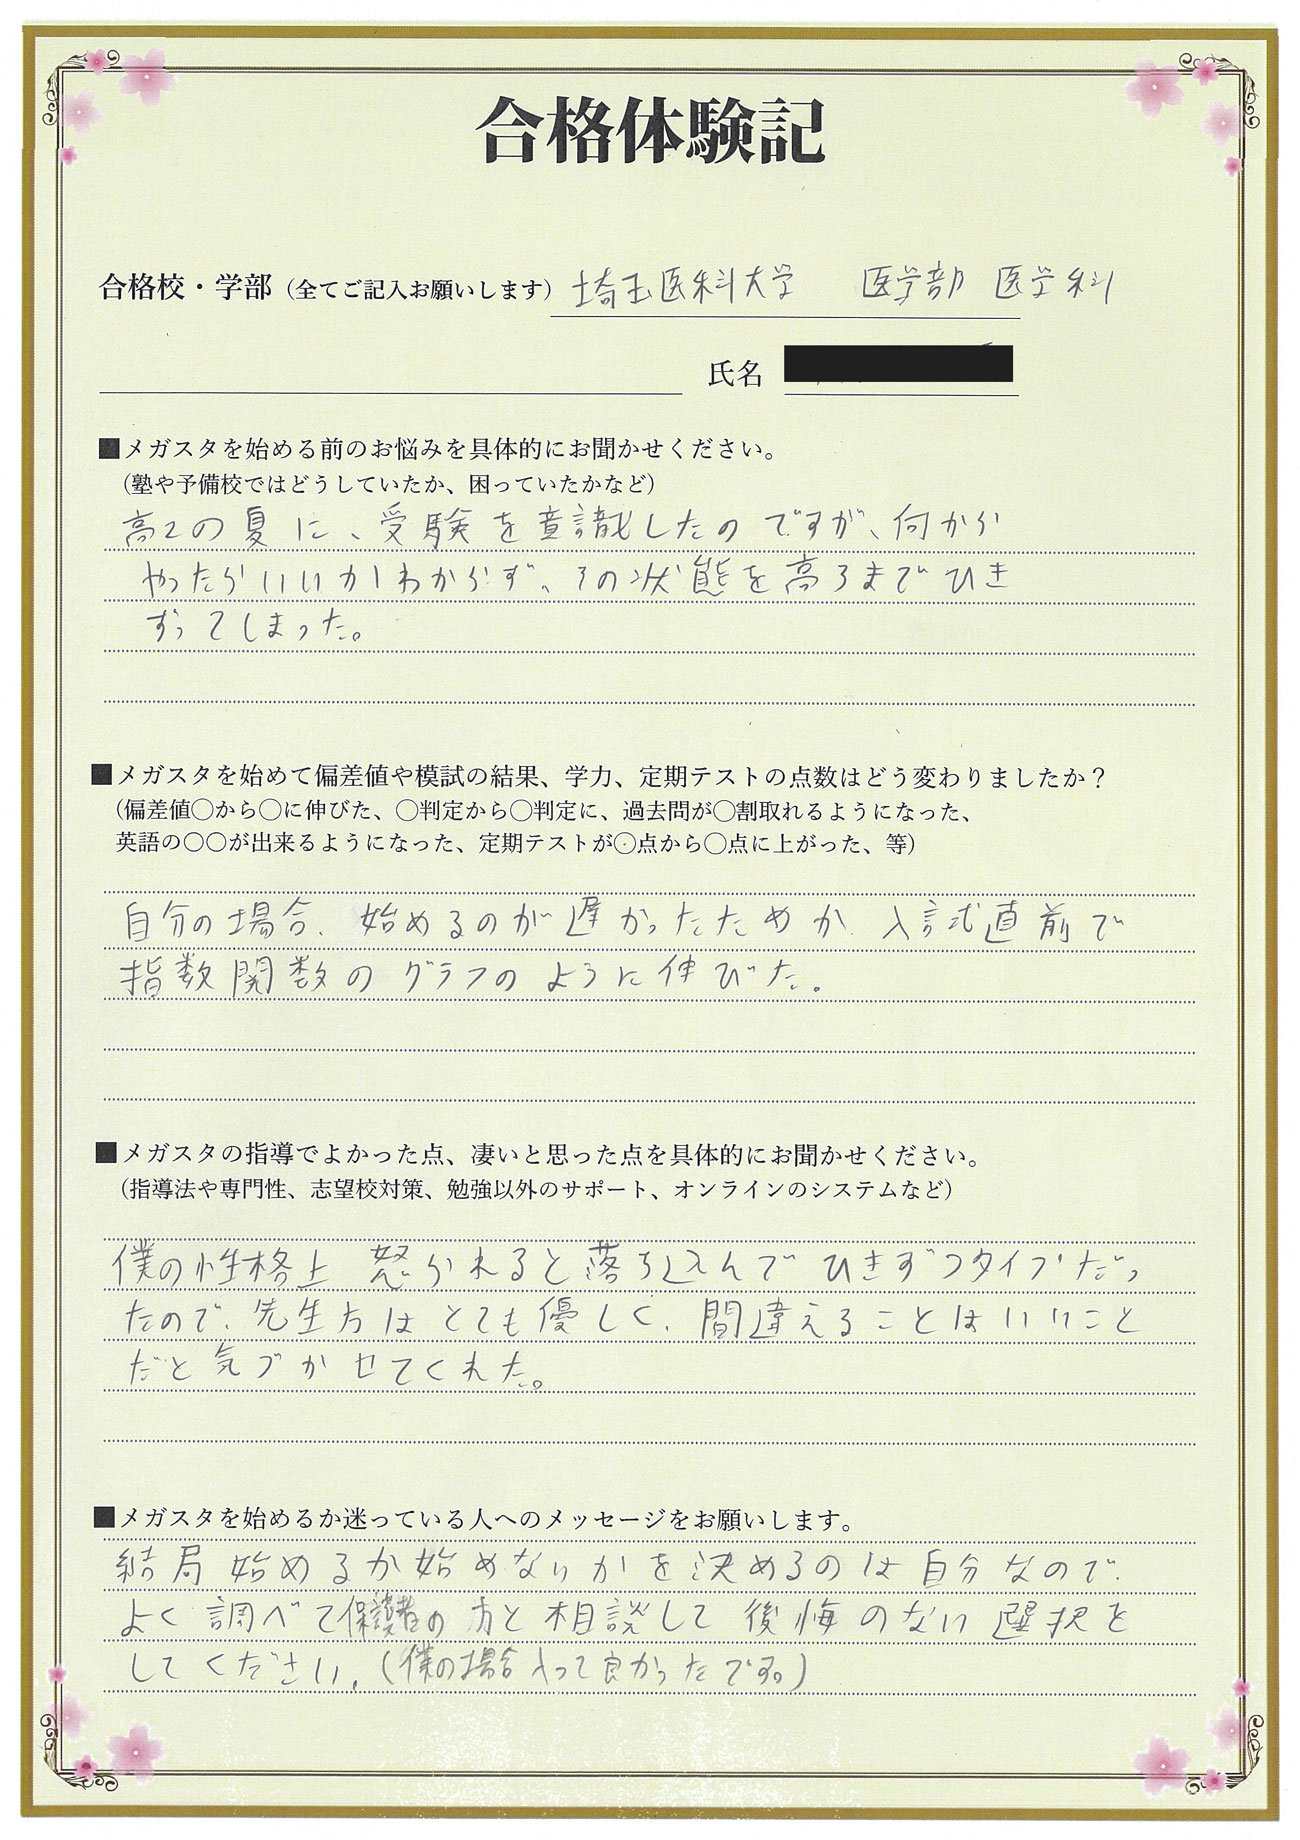 合格体験記
合格校・学部（全てご記入お願いします） 埼玉医科大学 医学部 医学科
氏名
■メガスタを始める前のお悩みを具体的にお聞かせください。
（塾や予備校ではどうしていたか、困っていたかなど）
高2の夏に、受験を意識したのですが、何から
やったらいいかわからず、その状態を高3までひき
ずってしまった。
■メガスタを始めて偏差値や模試の結果、学力、定期テストの点数はどう変わりましたか？
（偏差値〇から〇に伸びた、〇判定から〇判定に、過去問が〇割取れるようになった、
英語の〇〇が出来るようになった、定期テストが〇点から〇点に上がった、等）
自分の場合、始めるのが遅かったためか、入試直前で
指数関数のグラフのように伸びた。
■メガスタの指導でよかった点、凄いと思った点を具体的にお聞かせください。
（指導法や専門性、志望校対策、勉強以外のサポート、オンラインのシステムなど）
僕の性格上 怒られると落ち込んでひきずつタイプだっ
たので、先生方はとても優しく、間違えることはいいこと
だと気づかせてくれた。
■メガスタを始めるか迷っている人へのメッセージをお願いします。
結局始めるか始めないかを決めるのは自分なので、
よく調べて保護者の方と相談して後悔のない選択を
してください。（僕の場合入って良かったです。）